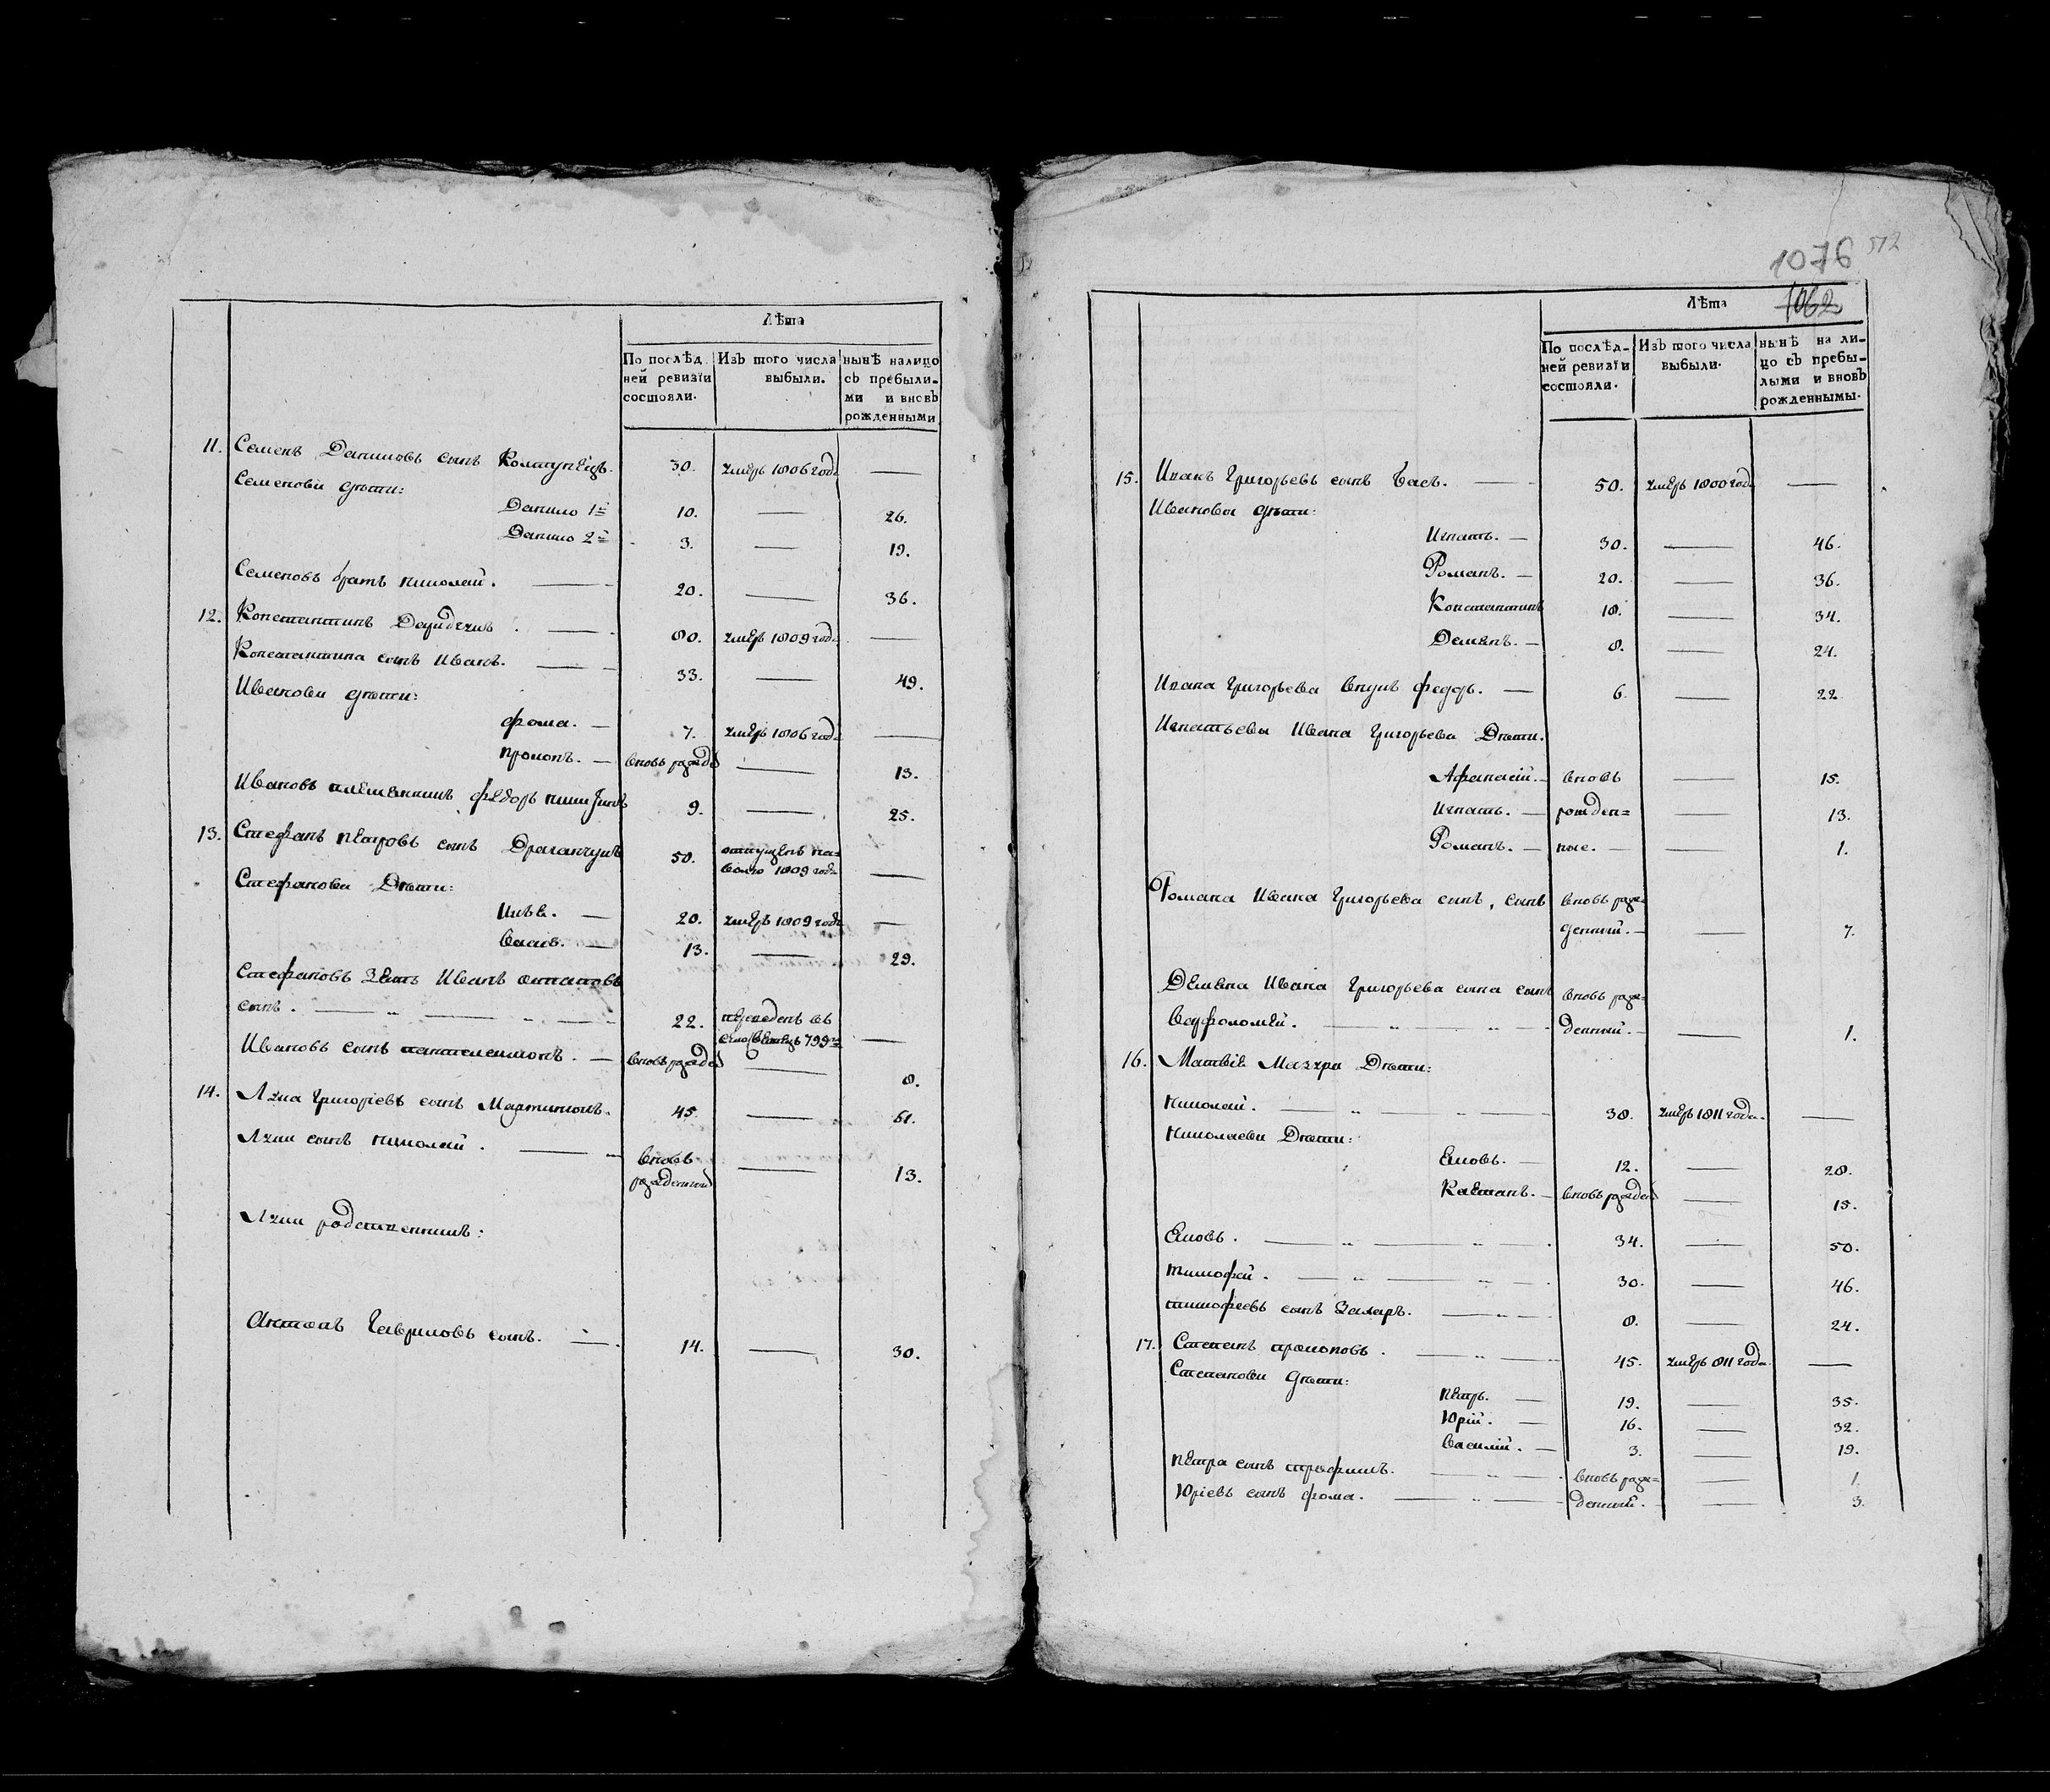 Лѣта
По послѣд Изъ того числа нынѣ налицо
ней ревизїи выбыли. съ пребыли-
состояли. ми и вновь
рожденными
11. Семенъ Даниловъ сынъ 30. умеръ 1806 год —
Семеновы дѣти:
Данило 1й 10. — 26.
Данило 2й 3. — 19.
Семеновъ братъ Николай. — 20. — 36.
12. Константинъ — 80. умеръ 1809 год —
Константина сынъ Иванъ. — 33. — 49.
Ивановы дѣти:
Фома. — 7. умеръ 1806 год —
Прокопъ. — вновь рожде — 13.
Ивановъ племянникъ Федоръ 9. — 25.
13. Стефанъ Петровъ сынъ Драганчукъ 50. отпущенъ на —
волю 1809 года
Стефановы Дѣти:
Илья. — 20. умеръ 1809 года —
Василь. — 13. — 29.
Стефановъ Зять Иванъ
сынъ. — 22. переведенъ въ —
село 799го
Ивановъ сынъ Пантелеимонъ. — вновь рожде — 8.
14. Лука Григорiевъ сынъ 45. — 61.
Луки сынъ Николай. — вновь — 13.
рожденный
Луки родственникъ:
Антонъ Гавриловъ сынъ. — 14. — 30.
1076 512
1062
Лѣта
По послѣд- Изъ того числа нынѣ на ли-
ней ревизїи выбыли. цо съ пребы-
состояли. лыми и вновь
рожденнымы.
15. Иванъ Григорьевъ сынъ Басъ. — 50. умеръ 1800 год —
Ивановы дѣти:
Игнатъ. — 30. — 46.
Романъ. — 20. — 36.
Константинъ 18. — 34.
Демянъ. — 8. — 24.
Ивана Григорьева внукъ Федоръ. — 6. — 22
Игнатьевы Ивана Григорьева Дѣти.
Афанасiй. — вновь — 15.
Игнатъ. — рожден= — 13.
Романъ. — ные. — 1.
Романа Ивана Григорьева сынъ, сынъ вновь рож=
денный. — 7.
Демяна Ивана Григорьева сына сынъ вновь рож=
Варфоломей. — денный. — 1.
16. Матвѣя Мазура Дѣти:
Николай. — 38. умеръ 1811 года. —
Николаевы Дѣти:
Яковъ. — 12. — 28.
Каетанъ. — вновь рожде — 15.
Яковъ. — 34. — 50.
Тимофей. — 30. — 46.
Тимофеевъ сынъ Захаръ. — 8. — 24.
17. Степанъ Прокоповъ. — 45. умеръ 811 года. —
Степановы дѣти:
Петръ. — 19. — 35.
Юрiй. — 16. — 32.
Василiй. — 3. — 19.
Петра сынъ Трофимъ. — вновь рож= — 1.
Юрiевъ сынъ Фома. — денный. — 3.